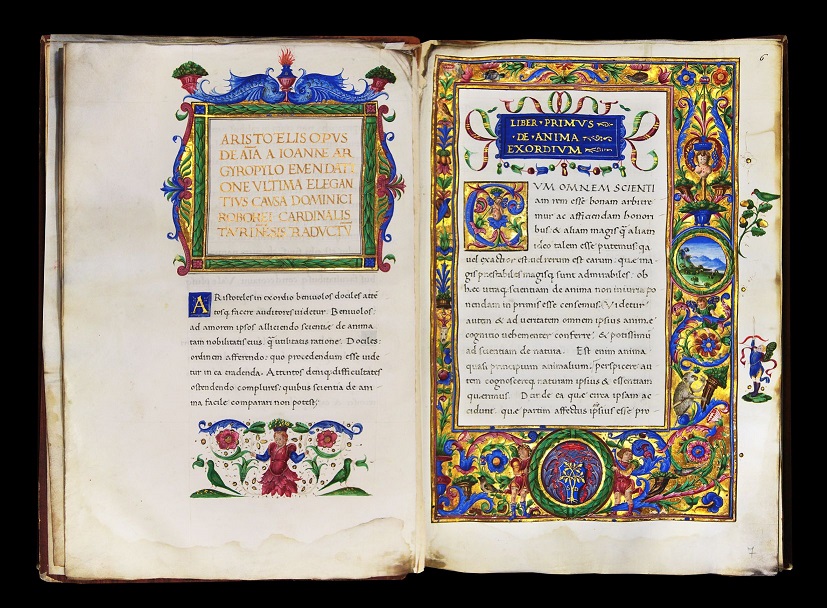 ARISTOTELIS OPVS
DE AĪA A IOANNE AR
GYROPYLO EMENDATI
ONE VLTIMA ELEGAN
TIVS CAVSA DOMINICI
ROBOREI CARDINALIS
TAVRINĒSIS TRADVCTV
ARistoteles in exordio beniuolos dociles attē
tosq facere auditores uidetur. Beniuolos:
ad amorem ipsos alliciendo scientiæ de anima
tam nobilitatis eius, q̄ utilitatis ratione. Dociles:
ordinem afferendo: quo procedendum esse uide
tur in ea tradenda. Attentos deniq; difficultates
ostendendo complures: quibus scientia de ani
ma facile comparari non potest;
6
LIBER · PRIMVS
· DE · ANIMA
EXORDIVM
CVM OMNEM SCIENTI
am rem esse bonam arbitre
mur ac afficiendam honori
bus: & aliam magis q̄ aliam
ideo talem esse putemus: qa
uel exactior est: uel rerum est earum: quæ ma
gis præstabiles magisq; sunt admirabiles: ob
hæc utraq; scientiam de anima non iniuria po
nendam in primis esse censemus. Videtur
autem & ad ueritatem omnem ipsius animæ
cognitio uehementer conferre, & potissimū
ad scientiam de natura. Est enim anima
quasi principium animalium. perspicere au
tem cognoscereq; naturam ipsius & essentiam
querimus. Deinde ea quæ circa ipsam ac
cidunt: quæ partim affectus ipsius esse pro
7